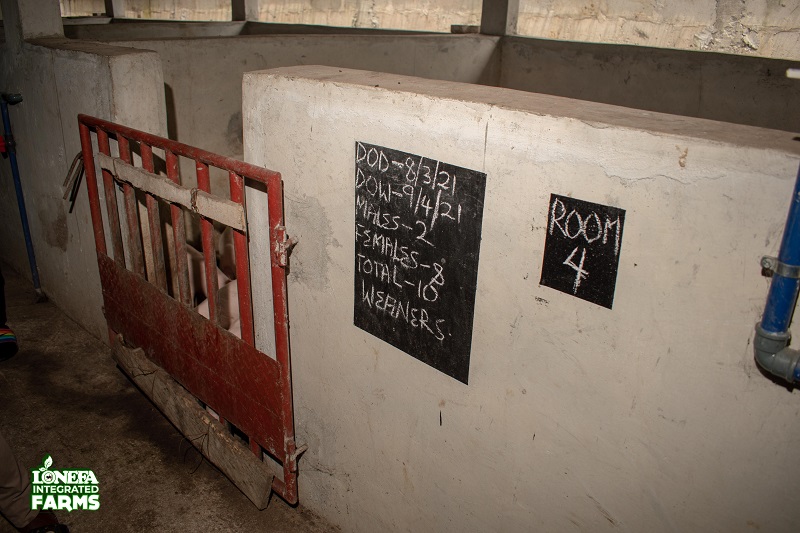 DOD-8/3/21
DOW-9/4/21
MALES-2
FEMALES-8
TOTAL-10
WEANERS
ROOM
4
LONEFA
INTEGRATED
FARMS